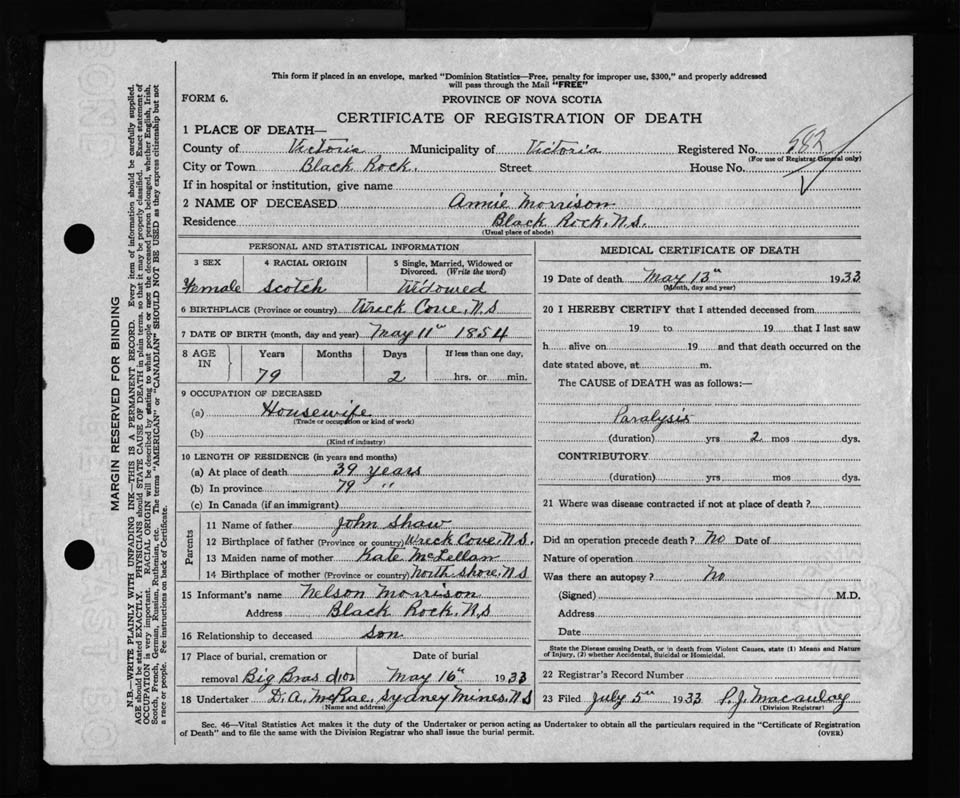 This form if placed in an envelope, marked "Dominion Statistics—Free, penalty for improper use, $300," and properly addressed
will pass through the Mail "FREE"
FORM 6.
PROVINCE OF NOVA SCOTIA
CERTIFICATE OF REGISTRATION OF DEATH
1 PLACE OF DEATH—
County of Victoria Municipality of Victoria Registered No. 582
(For use of Registrar General only)
City or Town Black Rock. Street House No.
If in hospital or institution, give name
2 NAME OF DECEASED Annie Morrison
Residence Black Rock, N.S.
(Usual place of abode)
PERSONAL AND STATISTICAL INFORMATION
3 SEX 4 RACIAL ORIGIN 5 Single, Married, Widowed or
Divorced. (Write the word)
Female Scotch Widowed
6 BIRTHPLACE (Province or country) Wreck Cove, N.S
7 DATE OF BIRTH (month, day and year) May 11th 1854
8 AGE IN Years Months Days If less than one day,
79 2 hrs. or min.
9 OCCUPATION OF DECEASED
(a) Housewife
(Trade or occupation or kind of work)
(b)
(Kind of industry)
10 LENGTH OF RESIDENCE (in years and months)
(a) At place of death 39 years
(b) In province 79 "
(c) In Canada (if an immigrant)
Parents
11 Name of father John Shaw
12 Birthplace of father (Province or country) Wreck Cove, N.S.
13 Maiden name of mother Kate McLellan
14 Birthplace of mother (Province or country) North Shore, N.S
15 Informant's name Nelson Morrison
Address Black Rock, N.S
16 Relationship to deceased Son
17 Place of burial, cremation or Date of burial
removal Big Bras d'or May 16th 1933
18 Undertaker D.A. McRae, Sydney Mines, N S
(Name and address)
MEDICAL CERTIFICATE OF DEATH
19 Date of death May 13th 1933
(Month, day and year)
20 I HEREBY CERTIFY that I attended deceased from
19 to 19 that I last saw
h alive on 19 and that death occurred on the
date stated above, at m.
The CAUSE of DEATH was as follows:—
Paralysis
(duration) yrs 2 mos dys.
CONTRIBUTORY
(duration) yrs mos dys.
21 Where was disease contracted if not at place of death?
Did an operation precede death? No Date of
Nature of operation
Was there an autopsy? No
(Signed) M.D.
Address
Date
State the Disease causing Death, or in death from Violent Causes, state (1) Means and Nature
of Injury, (2) whether Accidental, Suicidal or Homicidal.
22 Registrar's Record Number
23 Filed July 5th 1933 P.J. Macaulay
(Division Registrar)
Sec. 46—Vital Statistics Act makes it the duty of the Undertaker or person acting as Undertaker to obtain all the particulars required in the "Certificate of Registration
of Death" and to file the same with the Division Registrar who shall issue the burial permit. (OVER)
MARGIN RESERVED FOR BINDING
N.B—WRITE PLAINLY WITH UNFADING INK—THIS IS A PERMANENT RECORD. Every item of information should be carefully supplied.
AGE should be stated EXACTLY. PHYSICIANS should STATE CAUSE OF DEATH in plain terms, so that it may be properly classified. Exact statement of
OCCUPATION is very important. RACIAL ORIGIN will be described by stating to what people or race the deceased person belonged, whether English, Irish,
Scotch, French, German, Russian, Ruthenian, etc. The terms "AMERICAN" or "CANADIAN" SHOULD NOT BE USED as they express citizenship but not
a race or people. See instructions on back of Certificate.